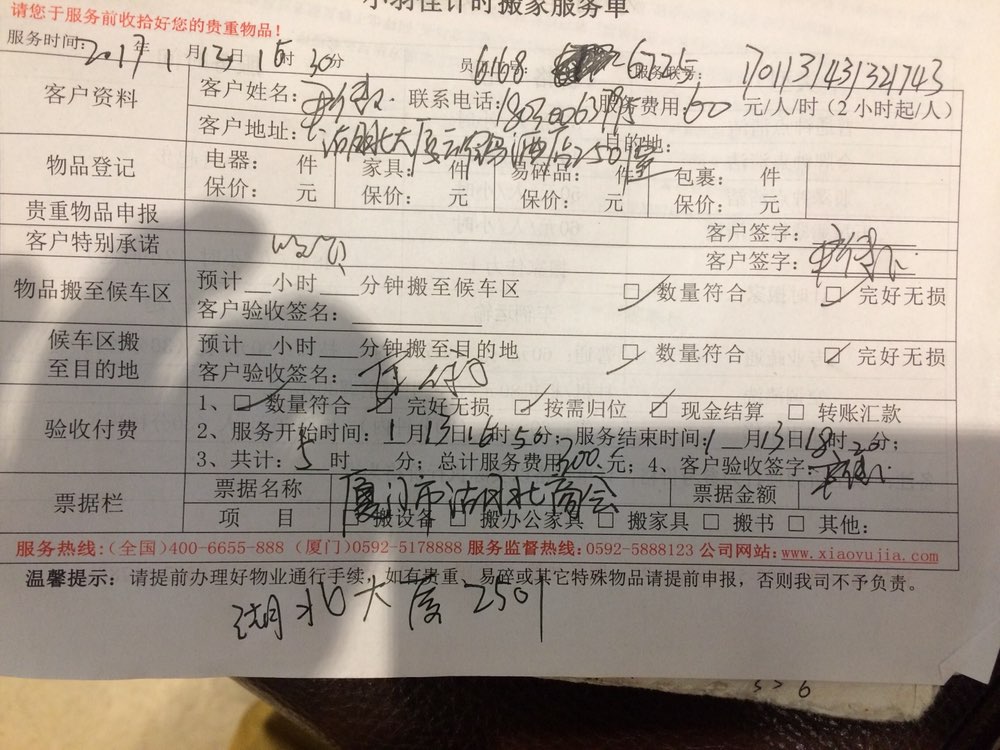 小羽佳计时搬家服务单
请您于服务前收拾好您的贵重物品！
服务时间：2017年1月13日16时30分 员 号：6168 6725 服务联号：1701131431321743
客户资料 客户姓名： 联系电话： 服务费用：60 元/人/时（2小时起/人）
客户地址： 湖北大厦 酒店250 目的地：
物品登记 电器： 件 家具： 件 易碎品： 件 包裹： 件
保价： 元 保价： 元 保价： 元 保价： 元
贵重物品申报 客户签字：
客户特别承诺 客户签字：
物品搬至候车区 预计__小时___分钟搬至候车区 数量符合 完好无损
客户验收签名：
候车区搬至目的地 预计__小时___分钟搬至目的地 数量符合 完好无损
客户验收签名：
验收付费 1、 数量符合 完好无损 按需归位 现金结算 转账汇款
2、服务开始时间：1月13日16时50分；服务结束时间：1月13日18时20分；
3、共计：5时___分；总计服务费用300元；4、客户验收签字：
票据栏 票据名称 厦门市湖北商会 票据金额
项 目 搬设备 搬办公家具 搬家具 搬书 其他：
服务热线:（全国）400-6655-888（厦门）0592-5178888 服务监督热线:0592-5888123 公司网站:www.xiaoyujia.com
温馨提示：请提前办理好物业通行手续，如有贵重、易碎或其它特殊物品请提前申报，否则我司不予负责。
湖北大厦2501